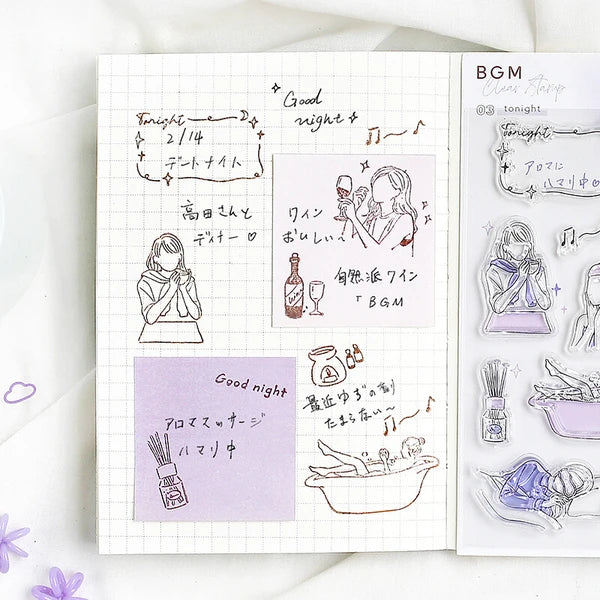 Good
night
Tonight
2/14
デートナイト
高田さんと
ディナー♡
ワイン
おいしい〜
自然派ワイン
「BGM
Good night
アロママッサージ
ハマり中
最近ゆずの
たまらない〜
BGM
Clear Stamp
03 tonight
Tonight
アロマに
ハマり中♡